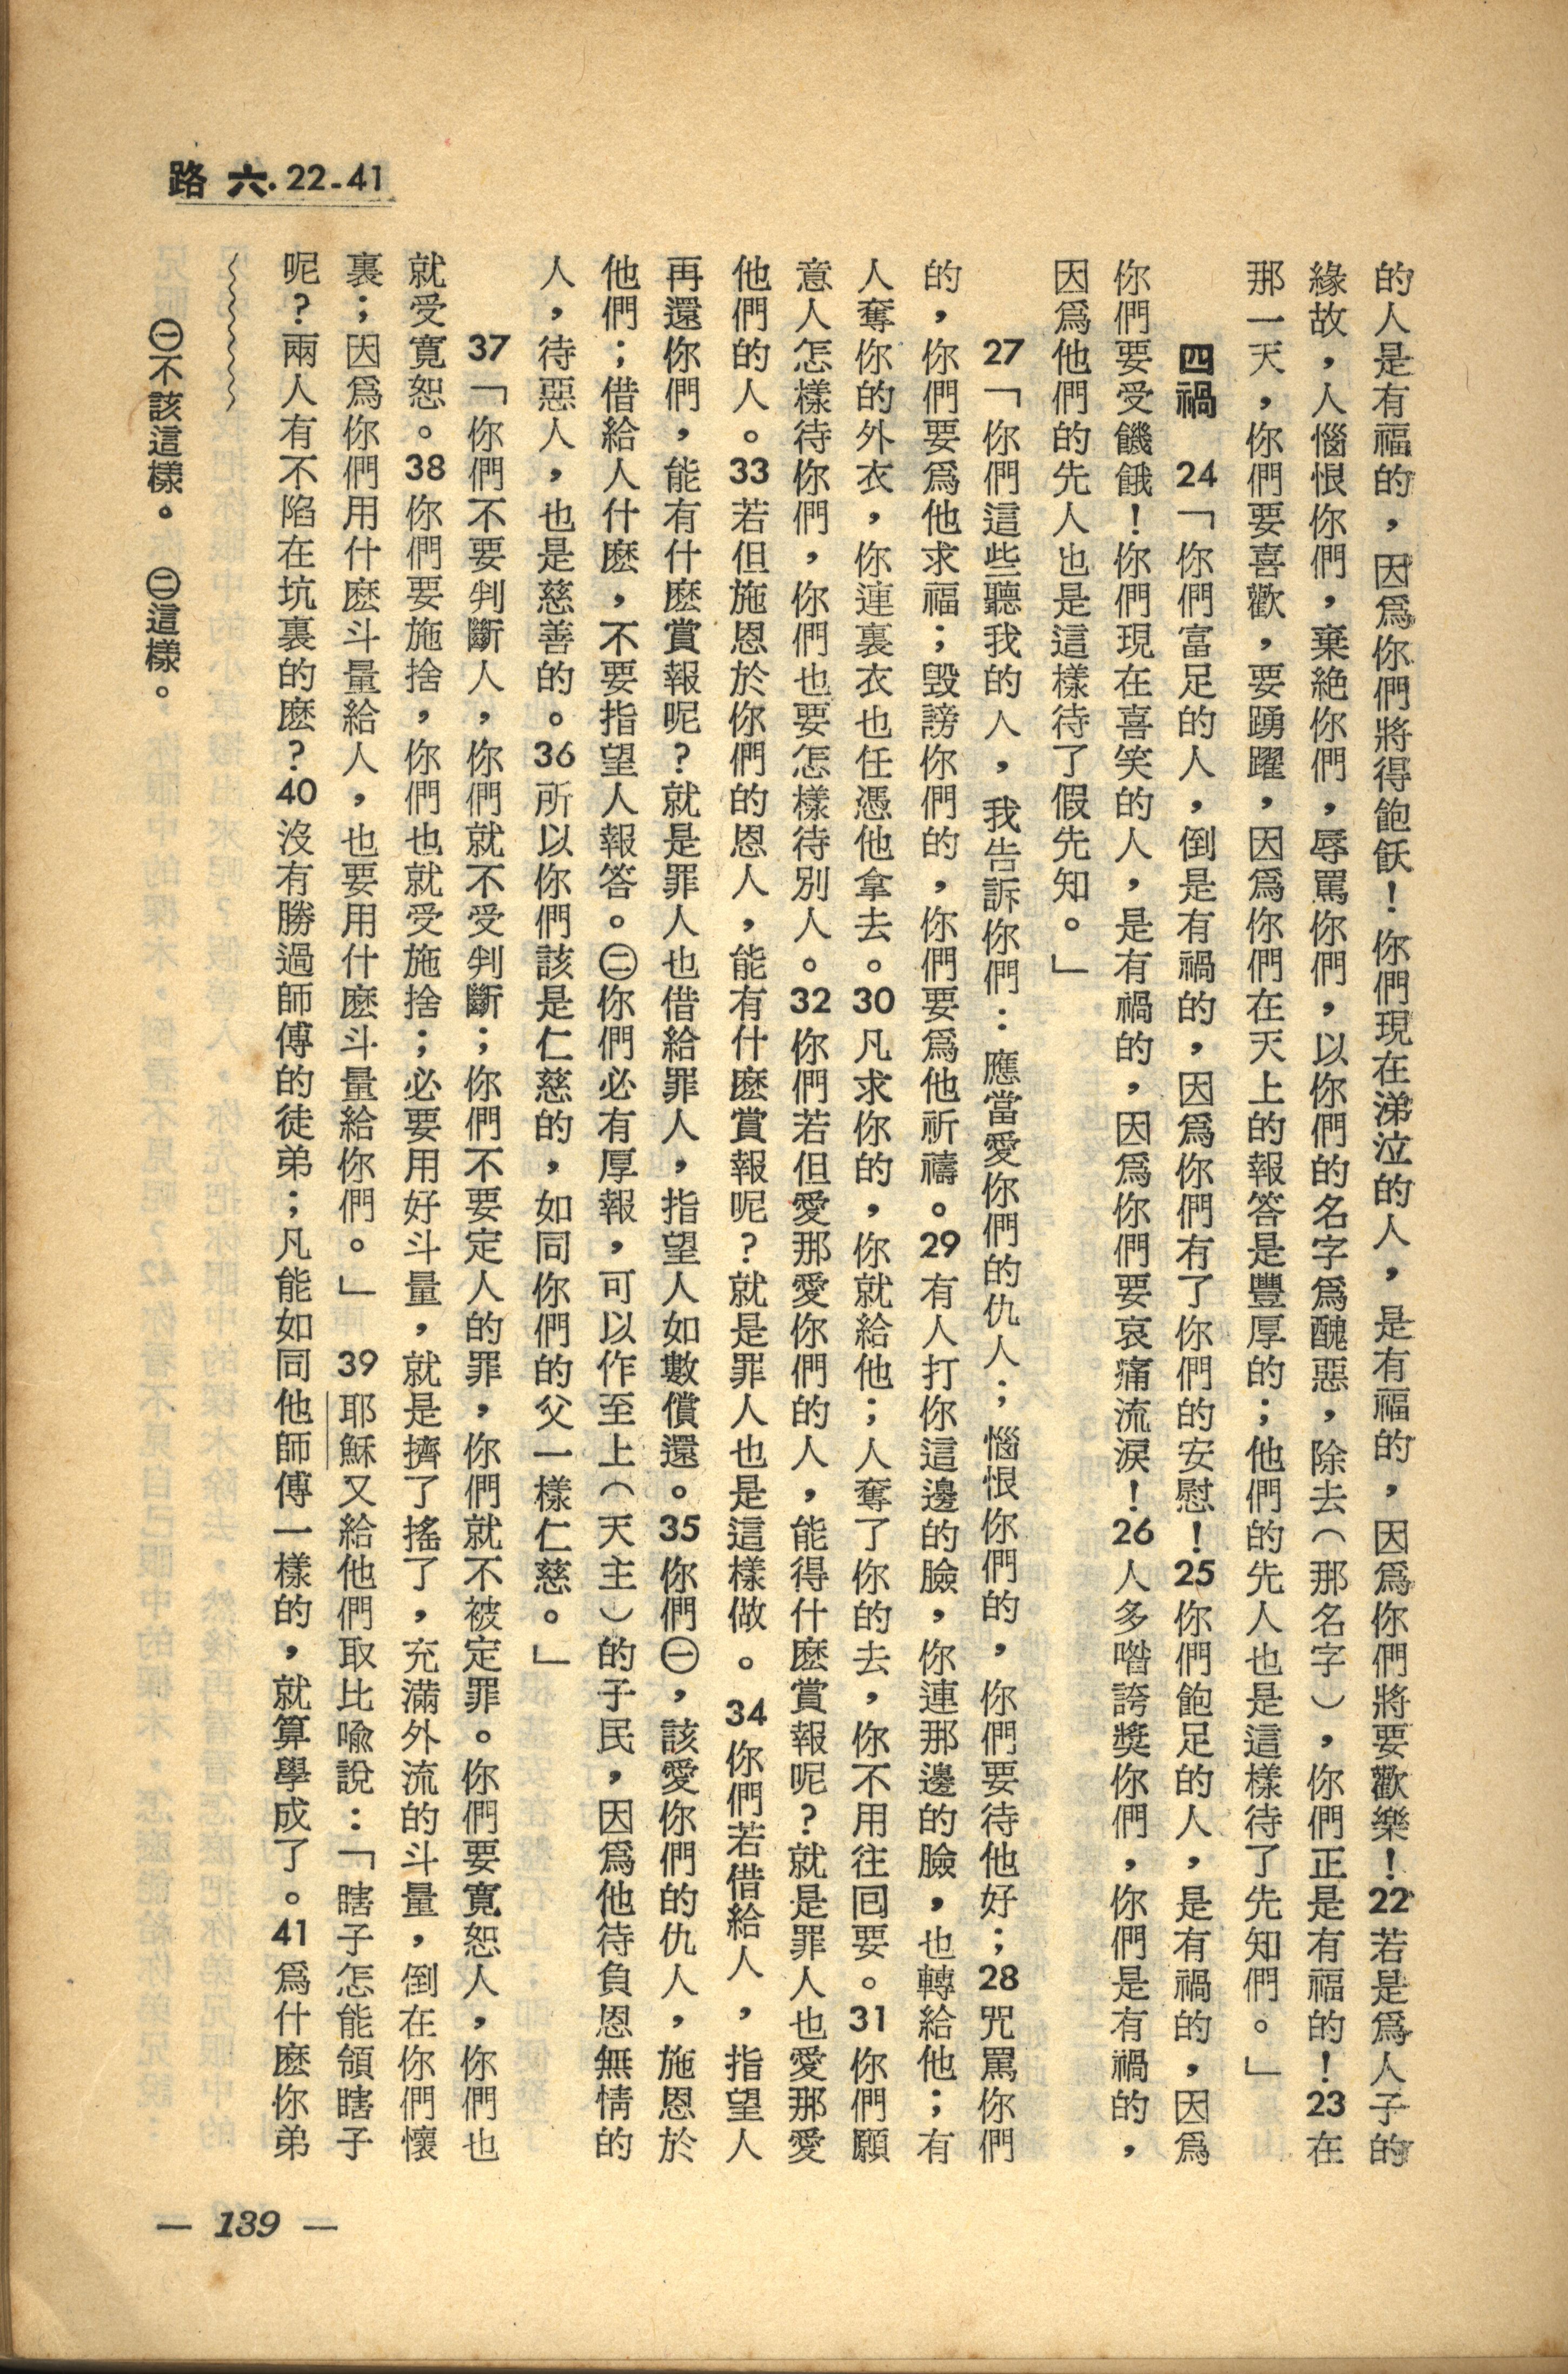 路 六. 22-41
的人是有福的，因爲你們將得飽飫！你們現在涕泣的人，是有福的，因爲你們將要歡樂！22若是爲人子的
緣故，人惱恨你們，棄絕你們，辱罵你們，以你們的名字爲醜惡，除去（那名字），你們正是有福的！23在
那一天，你們要喜歡，要踴躍，因爲你們在天上的報答是豐厚的；他們的先人也是這樣待了先知們。」
四禍 24「你們富足的人，倒是有禍的，因爲你們有了你們的安慰！25你們飽足的人，是有禍的，因爲
你們要受饑餓！你們現在喜笑的人，是有禍的，因爲你們要哀痛流淚！26人多喒誇獎你們，你們是有禍的，
因爲他們的先人也是這樣待了假先知。」
27「你們這些聽我的人，我告訴你們：應當愛你們的仇人；惱恨你們的，你們要待他好；28咒罵你們
的，你們要爲他求福；毀謗你們的，你們要爲他祈禱。29有人打你這邊的臉，你連那邊的臉，也轉給他；有
人奪你的外衣，你連裏衣也任憑他拿去。30凡求你的，你就給他；人奪了你的去，你不用往回要。31你們願
意人怎樣待你們，你們也要怎樣待別人。32你們若但愛那愛你們的人，能得什麼賞報呢？就是罪人也愛那愛
他們的人。33若但施恩於你們的恩人，能有什麼賞報呢？就是罪人也是這樣做。34你們若借給人，指望人
再還你們，能有什麼賞報呢？就是罪人也借給罪人，指望人如數償還。35你們㊀，該愛你們的仇人，施恩於
他們；借給人什麼，不要指望人報答。㊁你們必有厚報，可以作至上（天主）的子民，因爲他待負恩無情的
人，待惡人，也是慈善的。36所以你們該是仁慈的，如同你們的父一樣仁慈。」
37「你們不要判斷人，你們就不受判斷；你們不要定人的罪，你們就不被定罪。你們要寬恕人，你們也
就受寬恕。38你們要施捨，你們也就受施捨；必要用好斗量，就是擠了搖了，充滿外流的斗量，倒在你們懷
裏；因爲你們用什麼斗量給人，也要用什麼斗量給你們。」 39耶穌又給他們取比喩說：「瞎子怎能領瞎子
呢？兩人有不陷在坑裏的麼？40沒有勝過師傅的徒弟；凡能如同他師傅一樣的，就算學成了。41爲什麼你弟
㊀不該這樣。 ㊁這樣。
— 139 —